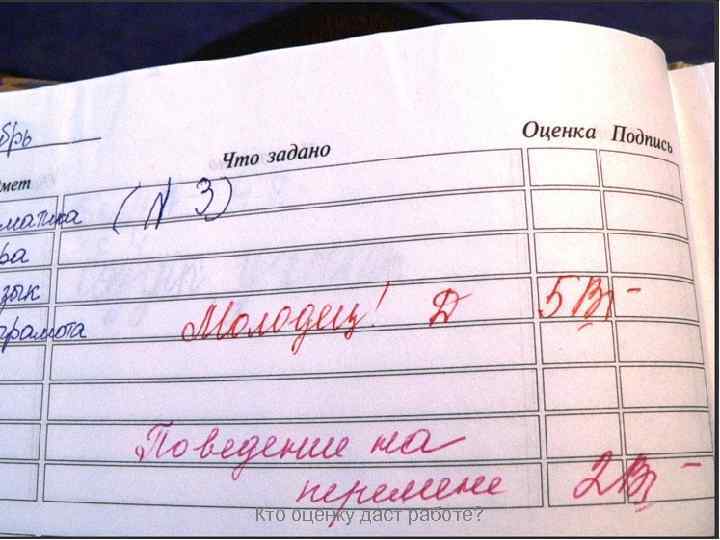 брь
Что задано Оценка Подпись
мет
матика (N 3)
ра
зык
грамота Молодец! Д 5
Поведение на
перемене 2
Кто оценку даст работе?